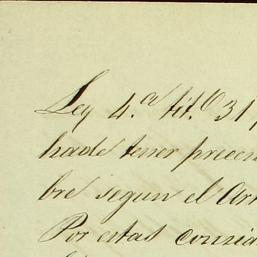 Ley 4.ª tit.º 31,
hade tener presen
bre segun el Arr
Por estas consid